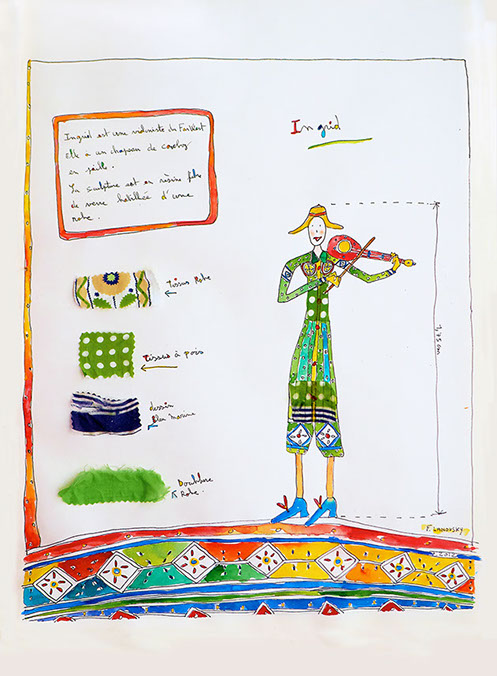 Ingrid
Ingrid est une violoniste du FarWest
elle a un chapeau de cowboy
en paille.
La sculpture est en résine fibre
de verre habillée d'une
robe.
tissus Robe
tissus à pois
dessin
bleu marine
Doublure
Robe.
1,75 cm
F. LANDUSKY
2012